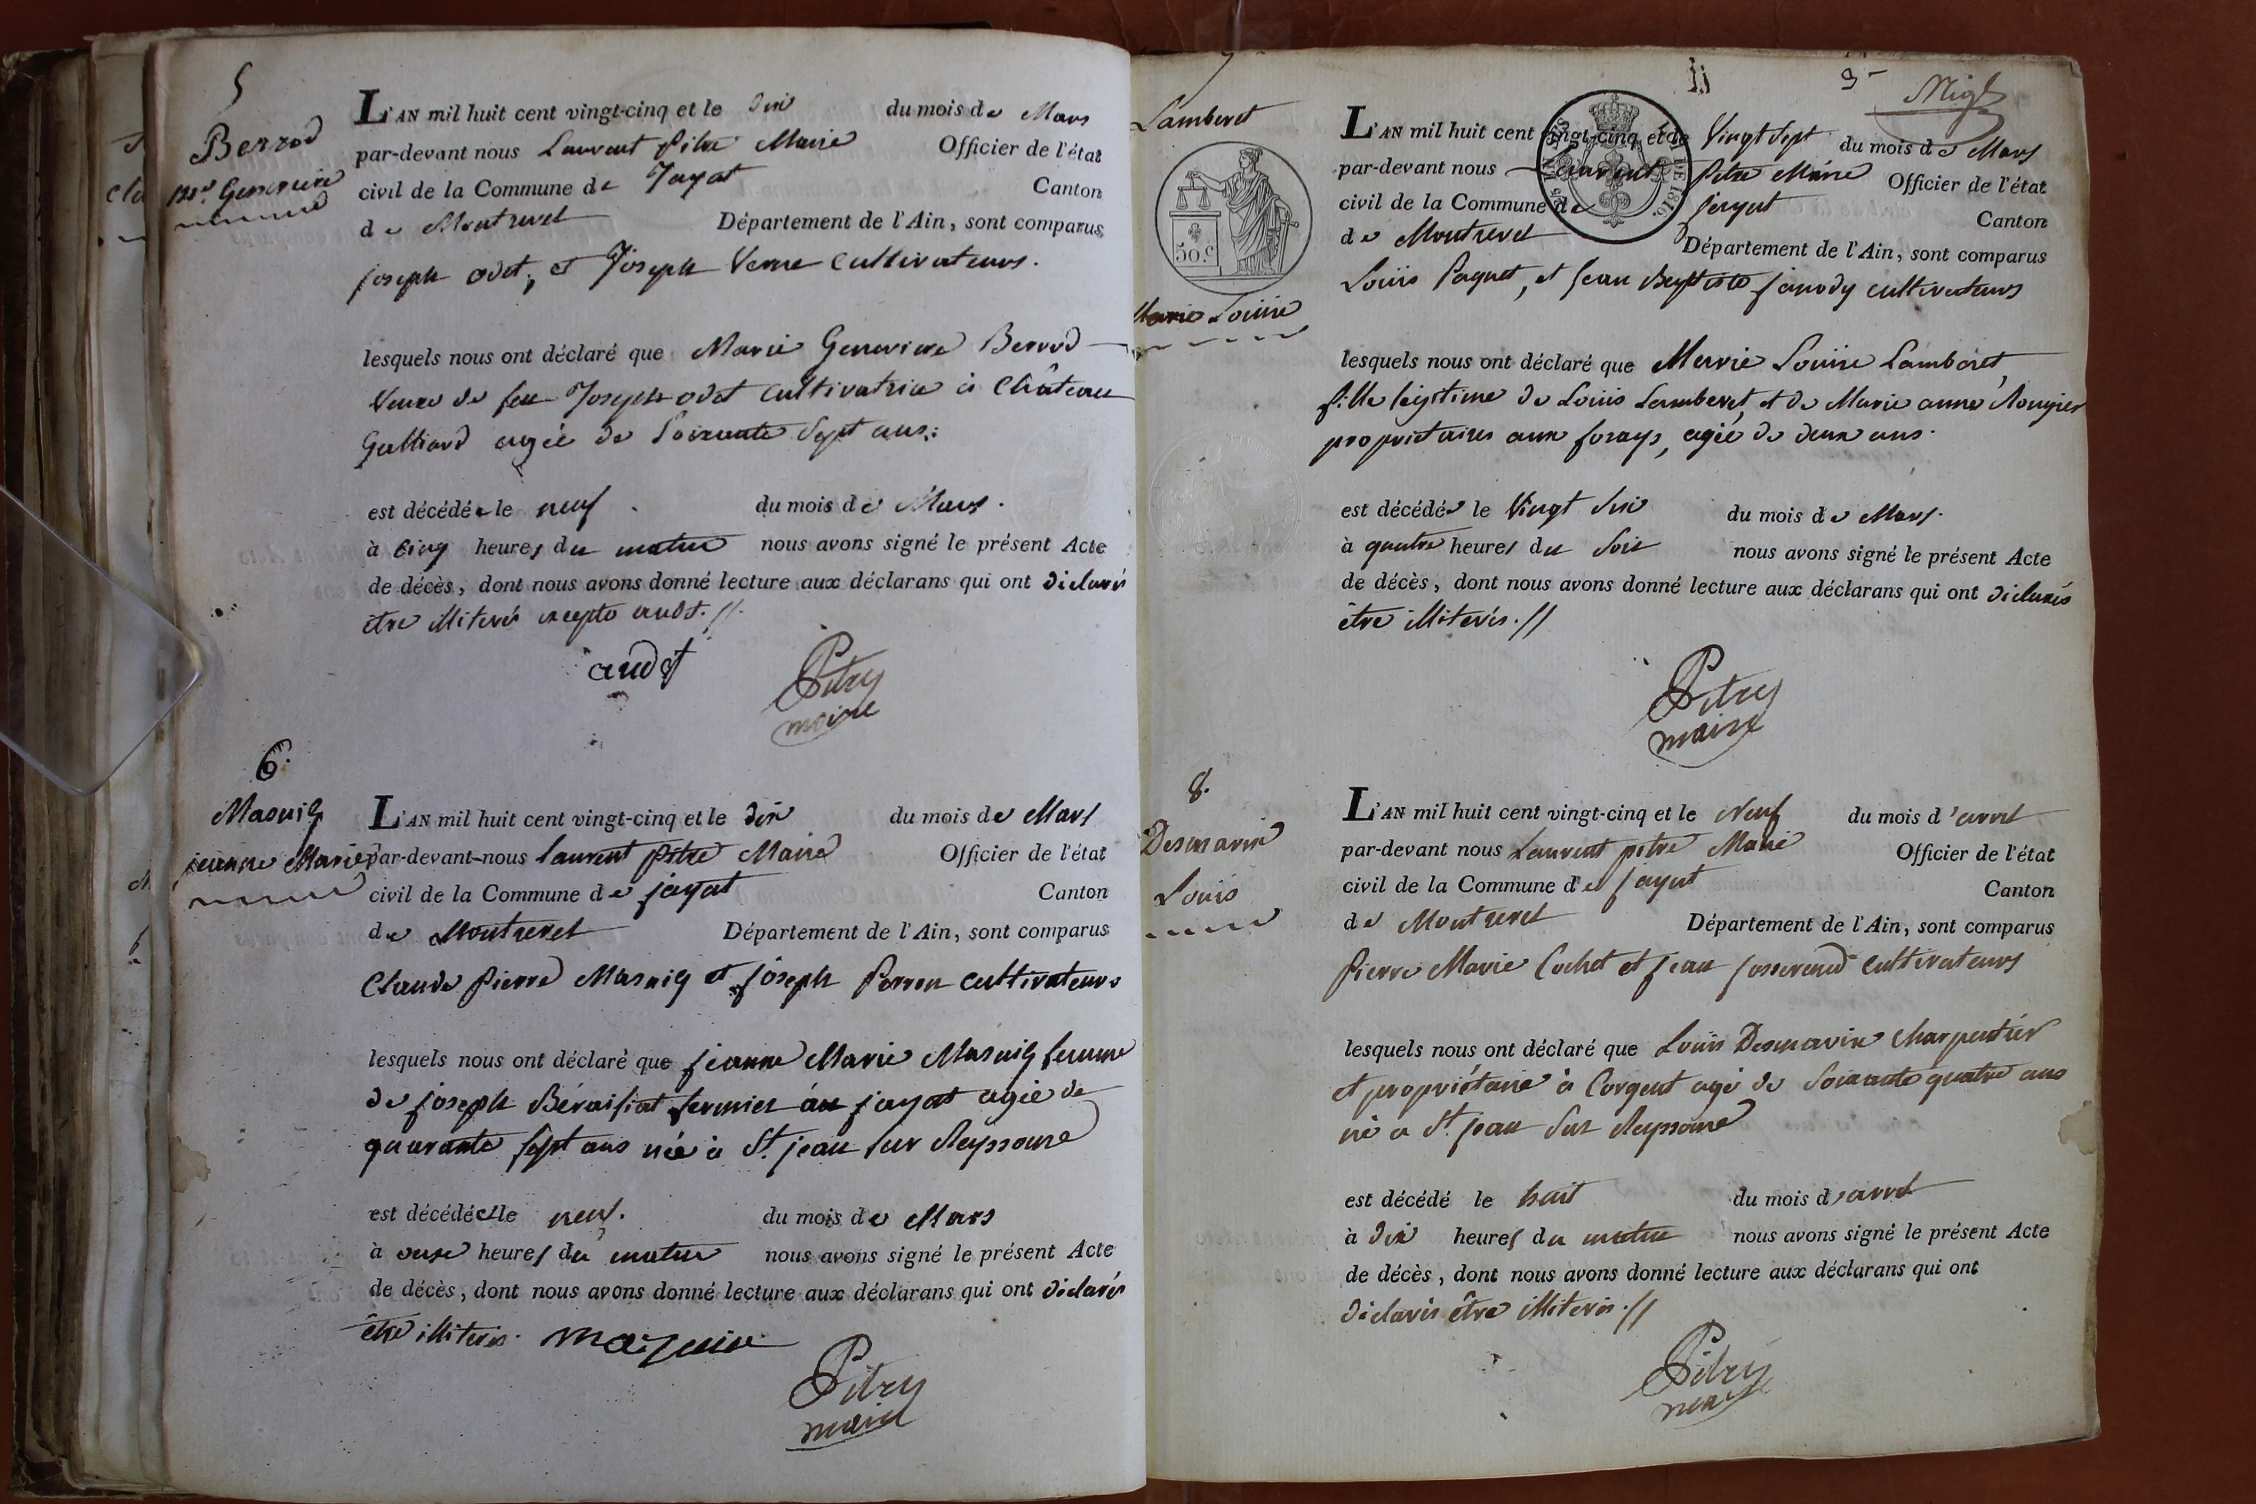 5
Berrod
Me. Genevieve
L'AN mil huit cent vingt-cinq et le dix du mois de Mars
par-devant nous Laurent Pitre Maire Officier de l'état
civil de la Commune de Jayat Canton
de Montrevel Département de l'Ain, sont comparus
joseph odet, et Joseph Verne cultivateurs.
lesquels nous ont déclaré que Marie Genevieve Berrod
Veuve de feu Joseph odet cultivatrice à Château
Galliard agée de Soixante Sept ans.
est décédée le neuf du mois de Mars.
à Cinq heures du matin nous avons signé le présent Acte
de décès, dont nous avons donné lecture aux déclarans qui ont déclarés
être illiterés excepté audet. //
audet
Pitre
maire
6.
Masuiq
jeanne Marie
L'AN mil huit cent vingt-cinq et le dix du mois de Mars
par-devant nous laurent pitre Maire Officier de l'état
civil de la Commune de jayat Canton
de Montrevel Département de l'Ain, sont comparus
Claude Pierre Masuiq et joseph Perron cultivateurs
lesquels nous ont déclaré que jeanne Marie Masuiq femme
de joseph Béraifiat fermier au jayat agée de
quarante sept ans née à St. jean sur Reyssouse
est décédée le neuf. du mois de Mars
à onse heures du matin nous avons signé le présent Acte
de décès, dont nous avons donné lecture aux déclarans qui ont déclarés
être illiterés. mazuir
Pitre
maire
7
9
Lamberet
50.c
Marie Louise
L'AN mil huit cent vingt-cinq et le Vingt Sept du mois de Mars
par-devant nous Laurent Pitre Maire Officier de l'état
civil de la Commune de jayat Canton
de Montrevel Département de l'Ain, sont comparus
Louis Paquet, et Jean Baptiste janody cultivateurs
lesquels nous ont déclaré que Marie Louise Lamberet,
fille légitime de Louis Lamberet, et de Marie anne Rongier
propriétaires aux forays, agée de deux ans.
est décédée le Vingt Six du mois de Mars.
à quatre heures du Soir nous avons signé le présent Acte
de décès, dont nous avons donné lecture aux déclarans qui ont déclarés
être illiterés. //
Pitre
maire
8.
Desmaris
Louis
L'AN mil huit cent vingt-cinq et le Neuf du mois d'avril
par-devant nous Laurent pitre Maire Officier de l'état
civil de la Commune de jayat Canton
de Montrevel Département de l'Ain, sont comparus
Pierre Marie Cochet et jean josserand cultivateurs
lesquels nous ont déclaré que Louis Desmaris Charpentier
et propriétaire à Corgent agé de Soixante quatre ans
né à St. jean Sur Reyssouse
est décédé le huit du mois d'avril
à dix heures du matin nous avons signé le présent Acte
de décès, dont nous avons donné lecture aux déclarans qui ont
déclarés être illiterés. //
Pitre
maire